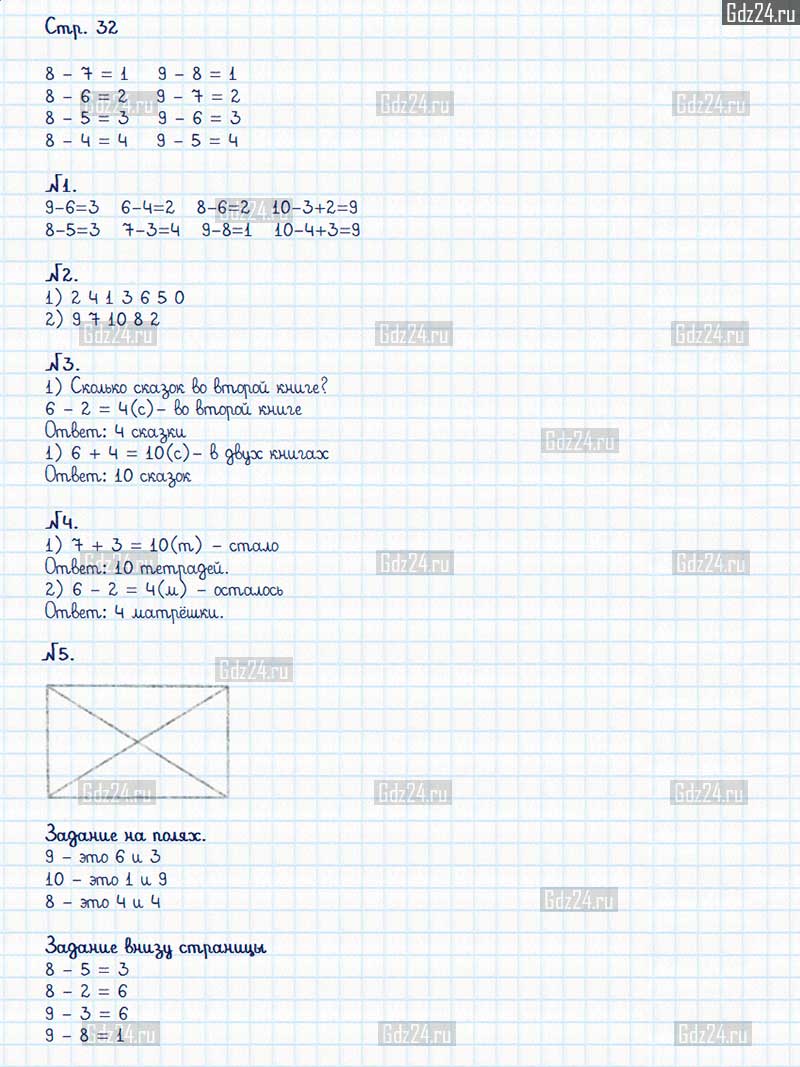 Gdz24.ru
Стр. 32
8 - 7 = 1 9 - 8 = 1
8 - 6 = 2 9 - 7 = 2
8 - 5 = 3 9 - 6 = 3
8 - 4 = 4 9 - 5 = 4
Gdz24.ru Gdz24.ru Gdz24.ru
№1.
9-6=3 6-4=2 8-6=2 10-3+2=9
8-5=3 7-3=4 9-8=1 10-4+3=9
Gdz24.ru
№2.
1) 2 4 1 3 6 5 0
2) 9 7 10 8 2
Gdz24.ru Gdz24.ru Gdz24.ru
№3.
1) Сколько сказок во второй книге?
6 - 2 = 4(с)- во второй книге
Ответ: 4 сказки
Gdz24.ru
1) 6 + 4 = 10(с)- в двух книгах
Ответ: 10 сказок
№4.
1) 7 + 3 = 10(т) - стало
Ответ: 10 тетрадей.
Gdz24.ru Gdz24.ru Gdz24.ru
2) 6 - 2 = 4(м) - осталось
Ответ: 4 матрёшки.
№5.
Gdz24.ru
Gdz24.ru Gdz24.ru Gdz24.ru
Задание на полях.
9 - это 6 и 3
10 - это 1 и 9
8 - это 4 и 4
Gdz24.ru
Задание внизу страницы
8 - 5 = 3
8 - 2 = 6
9 - 3 = 6
9 - 8 = 1
Gdz24.ru Gdz24.ru Gdz24.ru